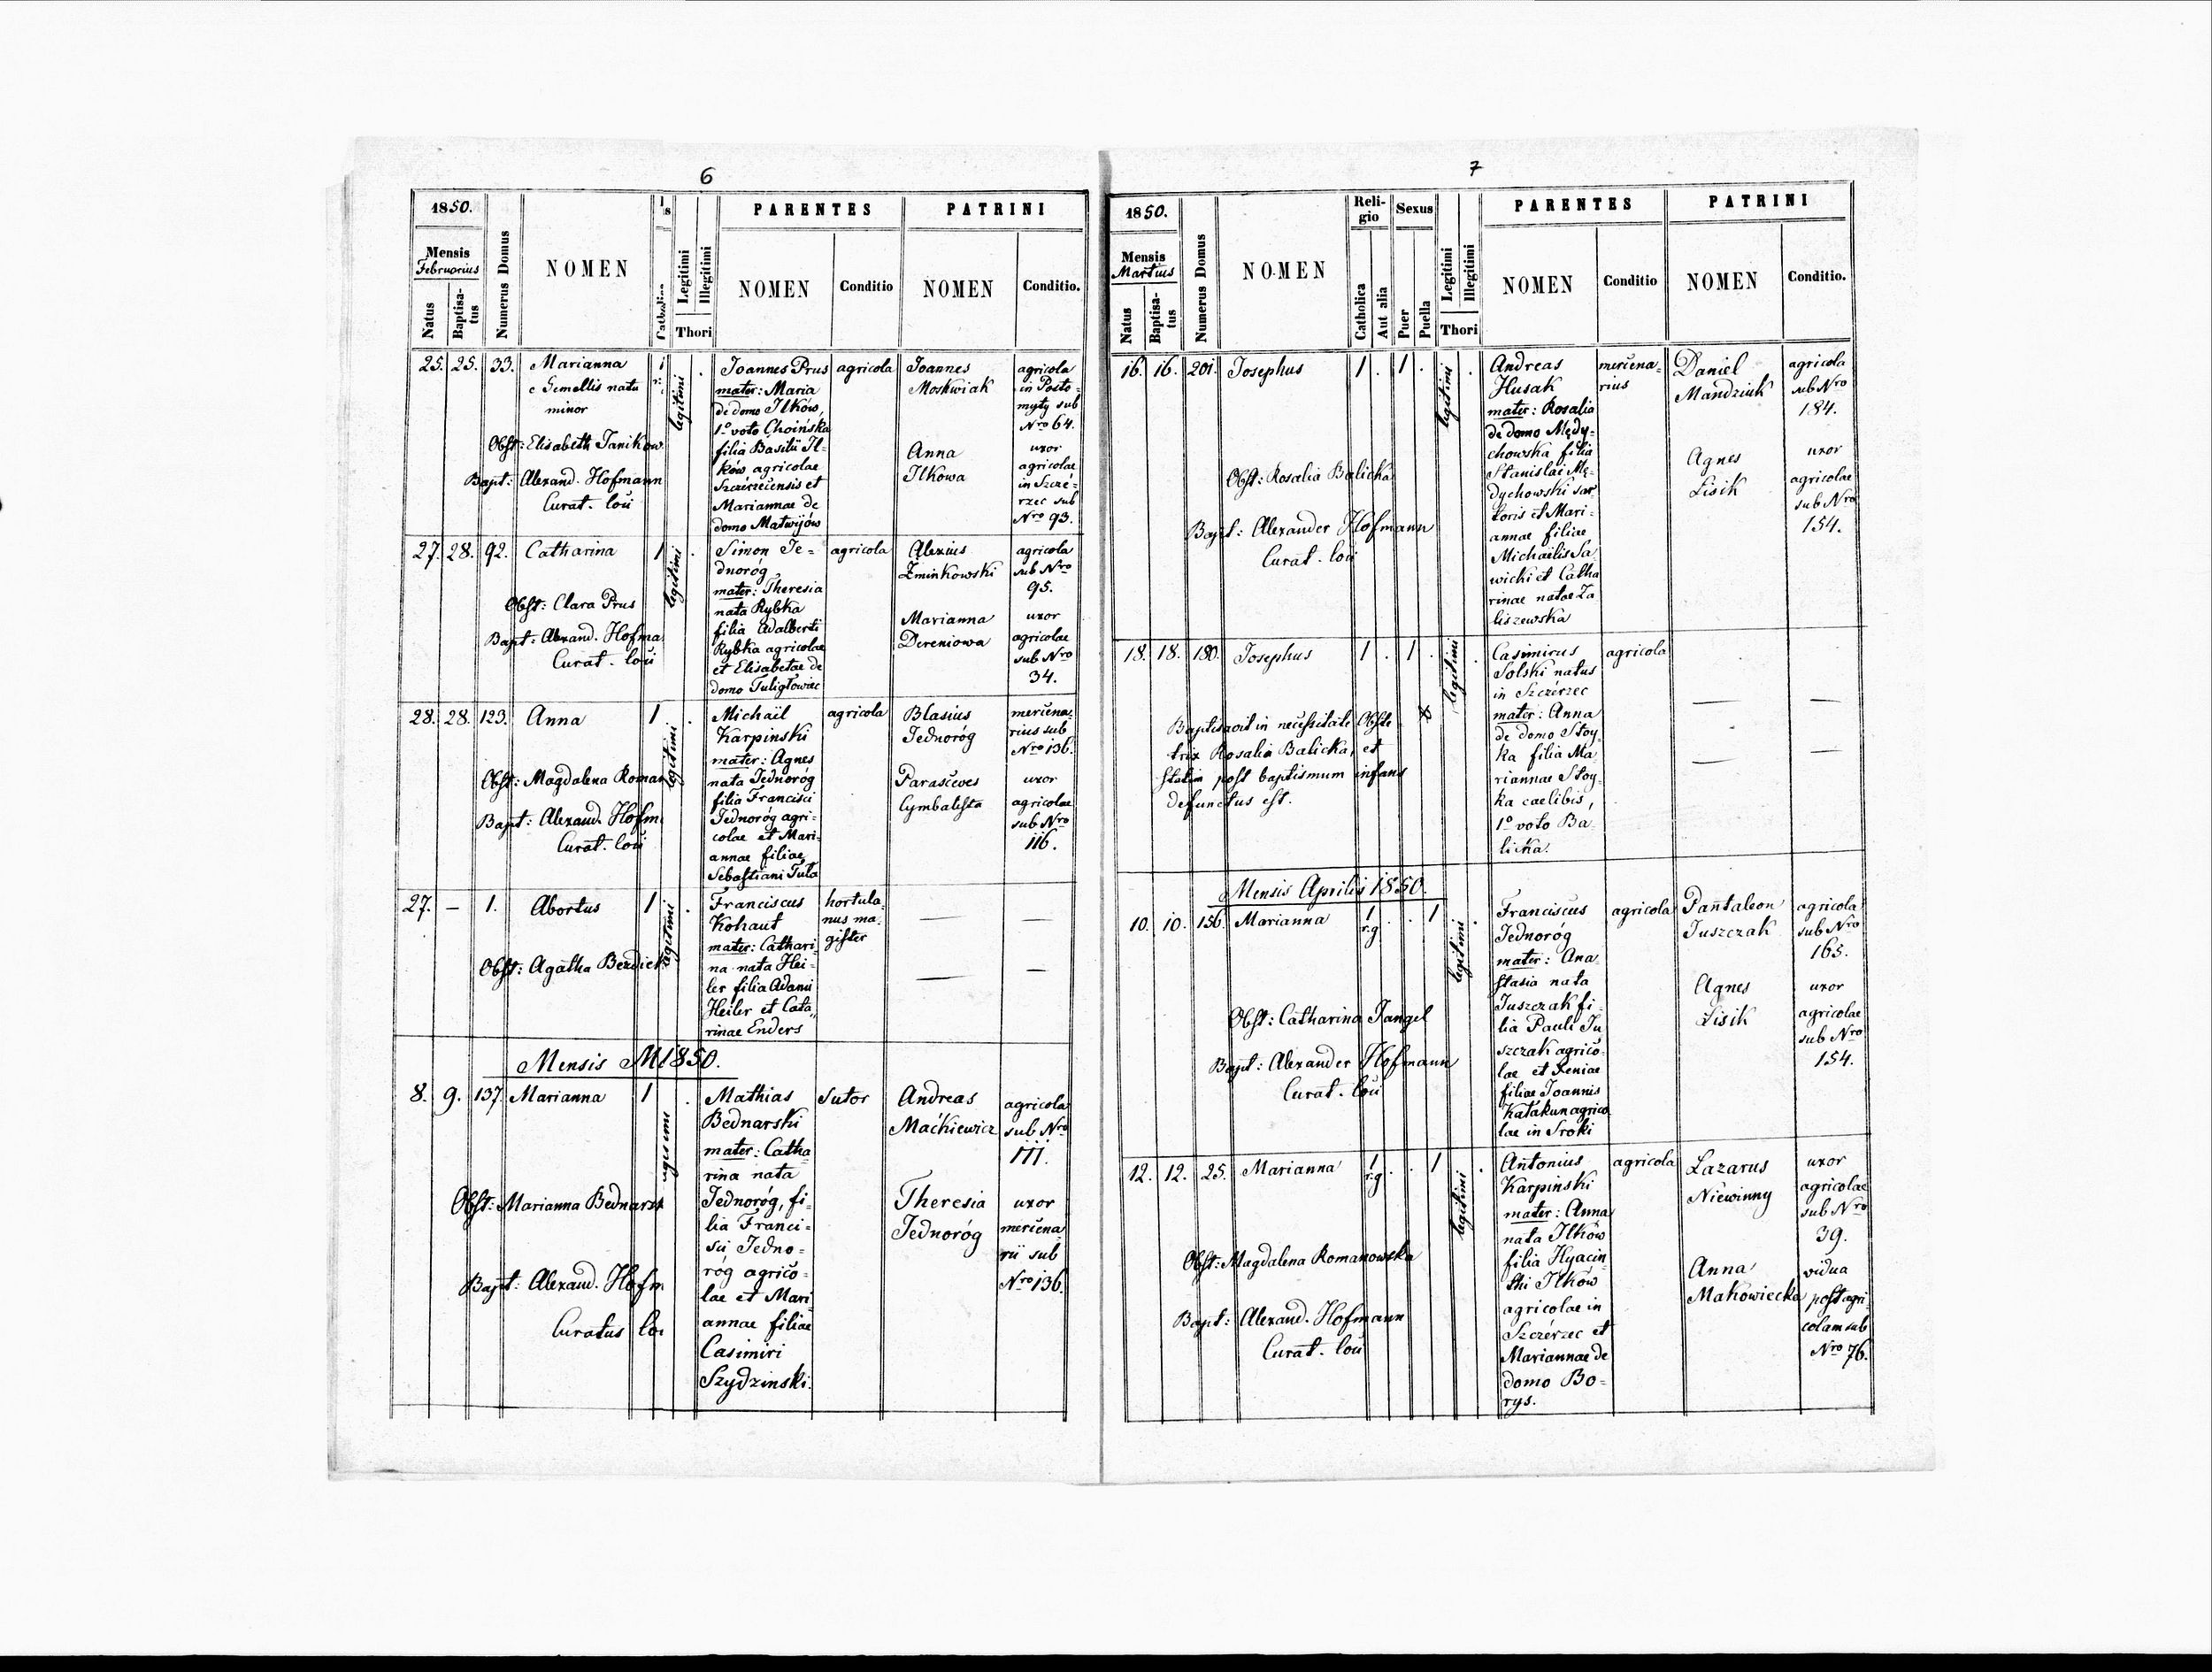 6
1850.
Mensis
Februarius
Natus
Baptisa-
tus
Numerus Domus
NOMEN
Legitimi
Illegitimi
Thori
PARENTES
NOMEN
Conditio
PATRINI
NOMEN
Conditio.
25. 25. 33.
Marianna
e Gemellis natu
minor
Obst: Elisabeth Janikow
Bapt: Alexand. Hofmann
Curat. loci
legitimi
Joannes Prus
mater: Maria
de domo Ilków,
1º voto Choińska
filia Basilii Il-
ków agricolae
Szczérzecensis et
Mariannae de
domo Matwijów
agricola
Joannes
Moskwiak
agricola
in Posto-
myty sub
Nro 64.
Anna
Ilkowa
uxor
agricolae
in Szczé-
rzec sub
Nro 93.
27. 28. 92.
Catharina
1
Obst: Clara Prus
Bapt: Alexand. Hofma
Curat. loci
legitimi
Simon Je-
dnoróg
mater: Theresia
nata Rybka
filia Adalberti
Rybka agricolae
et Elisabetae de
domo Tuligłowiec
agricola
Alexius
Żminkowski
agricola
sub Nro
95.
Marianna
Dereniowa
uxor
agricolae
sub Nro
34.
28. 28. 123.
Anna
1
Obst: Magdalena Roman
Bapt: Alexand. Hofm
Curat. loci
legitimi
Michaël
Karpinski
mater: Agnes
nata Jednoróg
filia Francisci
Jednoróg agri-
colae et Mari-
annae filiae
Sebastiani Tula
agricola
Blasius
Jednoróg
mercena-
rius sub
Nro 136.
Parasceves
Cymbalista
uxor
agricolae
sub Nro
116.
27. — 1.
Abortus
1
Obst: Agatha Berdick
legitimi
Franciscus
Kohaut
mater: Cathari-
na nata Hei-
ler filia Adami
Heiler et Cata-
rinae Enders
hortula-
nus ma-
gister
— —
— —
Mensis M1850.
8. 9. 137.
Marianna
1
Obst: Marianna Bednarsk
Bapt: Alexand. Hofm
Curatus loci
Mathias
Bednarski
mater: Catha-
rina nata
Jednoróg, fi-
lia Franci-
sci Jedno-
róg agrico-
lae et Mari-
annae filiae
Casimiri
Szydzinski.
Sutor
Andreas
Maćkiewicz
agricola
sub Nro
111.
Theresia
Jednoróg
uxor
mercena-
rii sub
Nro 136.
7
1850.
Mensis
Martius
Natus
Baptisa-
tus
Numerus Domus
NOMEN
Reli-
gio
Catholica
Aut alia
Sexus
Puer
Puella
Legitimi
Illegitimi
Thori
PARENTES
NOMEN
Conditio
PATRINI
NOMEN
Conditio.
16. 16. 201.
Josephus
1 . 1 .
Obst: Rosalia Balicka
Bapt: Alexander Hofmann
Curat. loci
legitimi
Andreas
Husak
mater: Rosalia
de domo Mędy-
chowska filia
Stanislai Mę-
dychowski sar-
toris et Mari-
annae filiae
Michaëlis Sa
wicki et Catha
rinae natae Za
liszewska
mercena-
rius
Daniel
Mandziuk
agricola
sub Nro
184.
Agnes
Lisik
uxor
agricolae
sub Nro
154.
18. 18. 180.
Josephus
1 . 1 .
Baptisavit in necessitate Obste-
trix Rosalia Balicka, et
statim post baptismum infans
defunctus est.
legitimi
Casimirus
Solski natus
in Szczérzec
mater: Anna
de domo Stoy-
ka filia Ma
riannae Stoy-
ka caelibis,
1º voto Ba-
licka.
agricola
— —
— —
Mensis Aprilis 1850.
10. 10. 156.
Marianna
1
r.g
. . 1
Obst: Catharina Fangel
Bapt: Alexander Hofmann
Curat. loci
legitimi
Franciscus
Jednoróg
mater: Ana-
stasia nata
Juszczak fi-
lia Pauli Ju
szczak agrico-
lae et Xeniae
filiae Joannis
Katakun agrico
lae in Sroki
agricola
Pantaleon
Juszczak
agricola
sub Nro
165.
Agnes
Lisik
uxor
agricolae
sub Nro
154.
12. 12. 25.
Marianna
1
r.g
. . 1
Obst: Magdalena Romanowska
Bapt: Alexand. Hofmann
Curat. loci
legitimi
Antonius
Karpinski
mater: Anna
nata Ilków
filia Hyacin-
thi Ilków
agricolae in
Szczérzec et
Mariannae de
domo Bo-
rys.
agricola
Lazarus
Niewinny
uxor
agricolae
sub Nro
39.
Anna
Makowiecka
vidua
post agri-
colam sub
Nro 76.